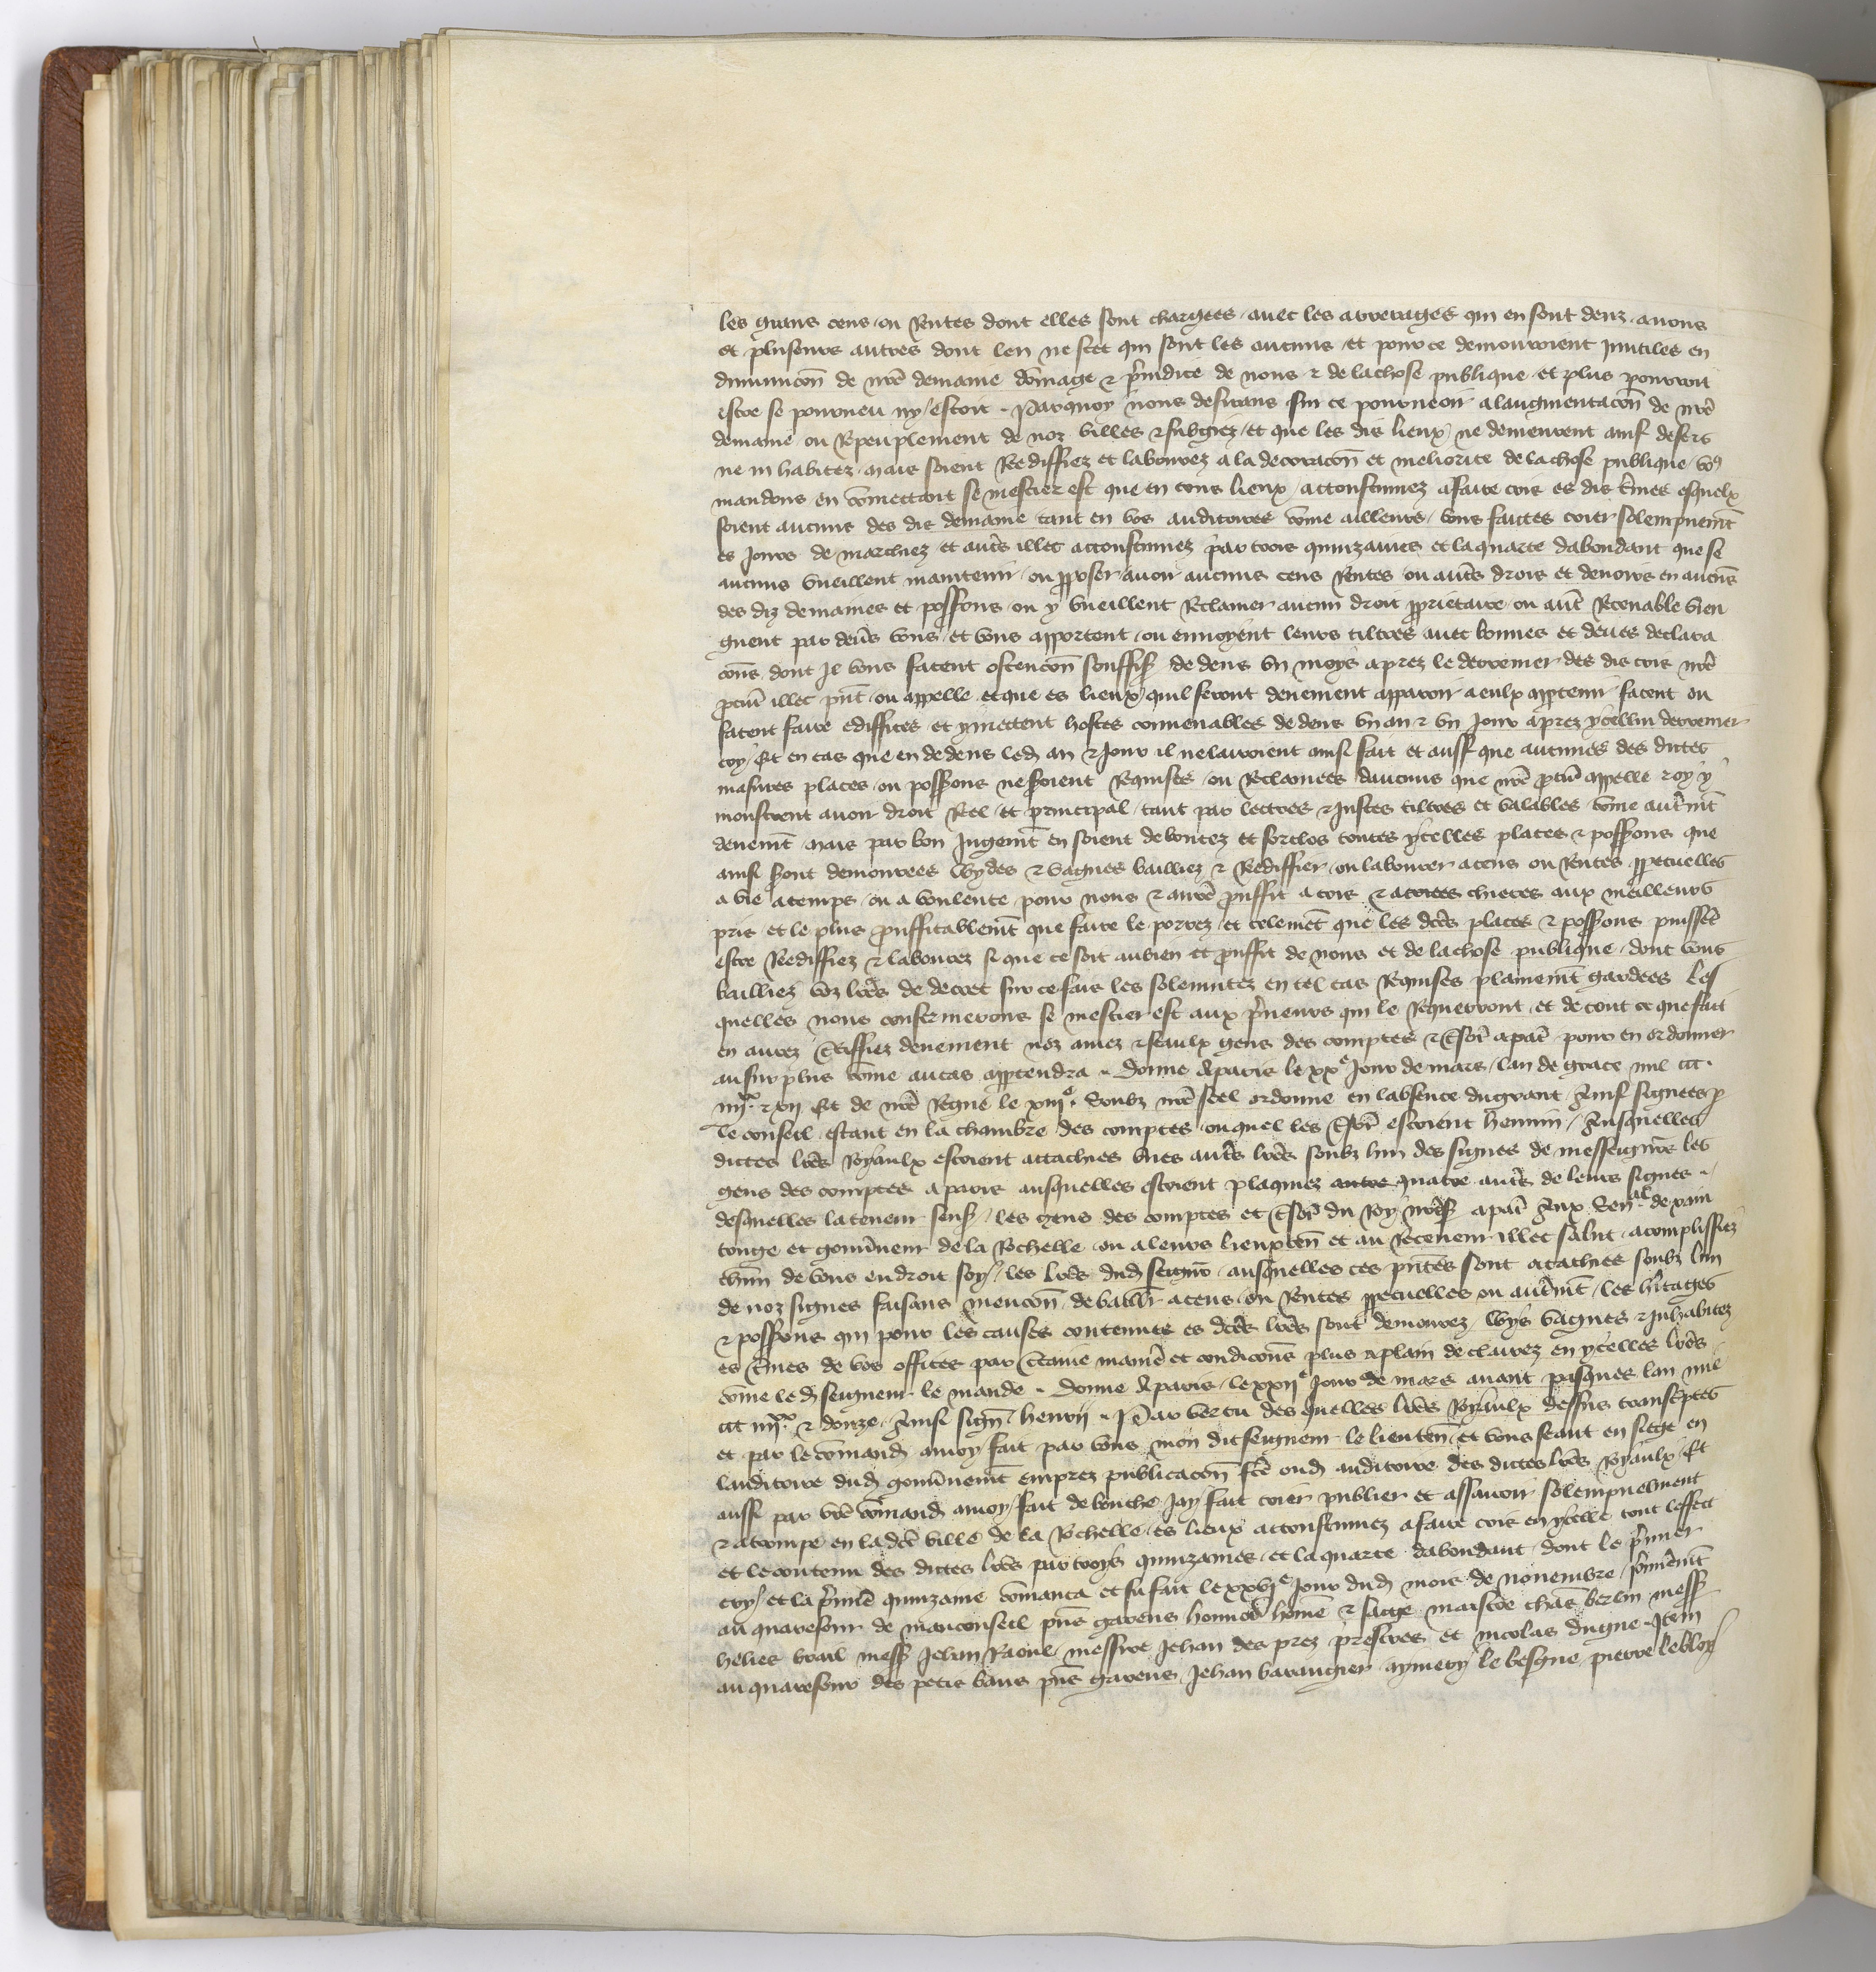 les grans cens ou Rentes dont elles sont chargees auec les arrerages qui en sont deuz a nous
et pluseurs autres dont len ne scet qui sont les aucuns et pour ce demourroient Inutiles en
diminucon de nre demaine domage & preiudice de nous & de la chose publique et plus pourroit
estre se pourueu ny estoit . Par quoy nous desirans sur ce pourueoir a laugmentacon de nre
demaine ou Repeuplement de noz villes & subgiez et que les dis lieux ne demeurent ainsi desers
ne inhabitez mais soient Reediffiez et labourez a la decoracon et meliorite de la chose publique vo9
mandons en comettant se mestier est que en tous lieux acconstumez a faire cris es dis tmes esquelx
soient aucuns des dis demaine tant en vos auditoires come ailleurs vous faites crier solempnemt
es Jours de marchiez et autres illec acoustumez par trois quinzaines et la quarte dabondant que se
aucuns vueillent maintenir ou pposer auoir aucuns cens Rentes ou autres drois et deuoirs en aucuns
des diz demaines et possons ou y vueillent Reclamer aucun droit pprietaire ou autre Receuable vien
gnent par deuers vous et vous apportent ou enuoyent leurs tiltres auec bonnes et deues declara
cons dont Il vous facent ostencon souffis de dens vn moys aprez le derrenier des dis cris nre
pcur illec pnt ou appelle et que es lieux quil seront deuement apparoir a eulx apptenir facent ou
facent faire ediffices et y mettent hostes conuenables de dens vn an & vn Jour aprez ycellui derrenier
cry Et en cas que en dedens led an & Jour il ne lauroient ainsi fait et aussi que aucunes des dictes
masures places ou possons ne seroient Requises ou Reclamees daucuns que nre pcur appelle & oy y
monstrent auoir droit Reel et principal tant par lettres & Justes tiltres et valables come autremt
deuemt mais par bon Jugemt en soient deboutez et forclos toutes ycelles places & possons que
ainsi seront demourees wydes & vagues bailliez & Rediffier ou labourer a cens ou Rentes ppetuelles
a vie a temps ou a voulente pour nous & a nre prouffit a cris & chieres aux meilleurs
pris et le plus prouffitablemt que faire le porrez et telement que les dces places & possons puissent
estre Reediffiez & labourez si que ce soit au bien et prouffit de nous et de la chose publique dont vous
bailliez voz lres de decret sur ce fais les solennitez en tel cas Requises plainemt gardees les
quelles nous confermerons se mestier est aux preneurs qui le Requerront et de tout ce que fait
en aurez Certiffiez deuement noz amez & feaulx gens des comptes & tsor a paris pour en ordonner
au surplus come au cas apptendra . Donne A paris le xxe Jour de mars lan de grace mil ccc
iiiixx & xii Et de nre Regne le xiiie . Soubz nre seel ordonne en labsence du grant Ainsi signees p
le conseil estant en la chambre des comptes ouquel les tsor estoient henrin / Ausquelles
dictes lres Royaulx estoient attachies vnes autres lres soubz lun des signes de messeigneurs les
gens des comptes a paris ausquelles estoient plaquiez quatre autres de leurs signes
desquelles la teneur sensuit / les gens des comptes et tsor du Roy nres a paris Aux Senal de xain
tonge et gouuneur de la Rochelle ou a leurs lieuxten et au Receueur illec salut acomplissiez
chun de vous en droit soy les lres dud seigneur ausquelles ces pntes sont atachies soubz lun
de noz signes faisans mencon de baillr a cens ou Rentes ppetuelles ou autremt les hritages
& possons qui pour les causes contenues es dces lres sont demourez wys vagues & inhabitez
es tmes de vos offices par certaine maniere et condicons plus a plain declairez en ycelles lres
come led seigneur le mande . Donne A paris le xxiie Jour de mars auant pasques lan mil
ccc iiiixx & douze Ainsi sign henrij . Par vertu des quelles lres Royaulx dessus transcptes
et par le comand a moy fait par vous mon dit seigneur le lieuten et vous seant en siege en
lauditoire dud gouunemt emprez publicacon fce oud auditoire des dictes lres Royaulx Et
aussi par vre comand a moy fait de bouche Jay fait crier publier et assauoir solempnelment
& a trompe en la dce ville de la Rochelle es lieux acconstumez a faire cris en ycelle tout leffect
et le contenu des dictes lres par troys quinzaines et la quarte dabondant dont le premier
cry et la premiere quinzaine comanca et fu fait le xxvie Jour dud mois de nouembre premieremt
au quarefour de mauconseil pns garens honnorable home & saige maistre chas berlin mess
helies vrail mess Jehan Raoul messire Jehan des prez prestres et nicolas dugue . Item
au quarefour des petis bans pns garens Jehan barangier aymery le besgue pierre lebloy